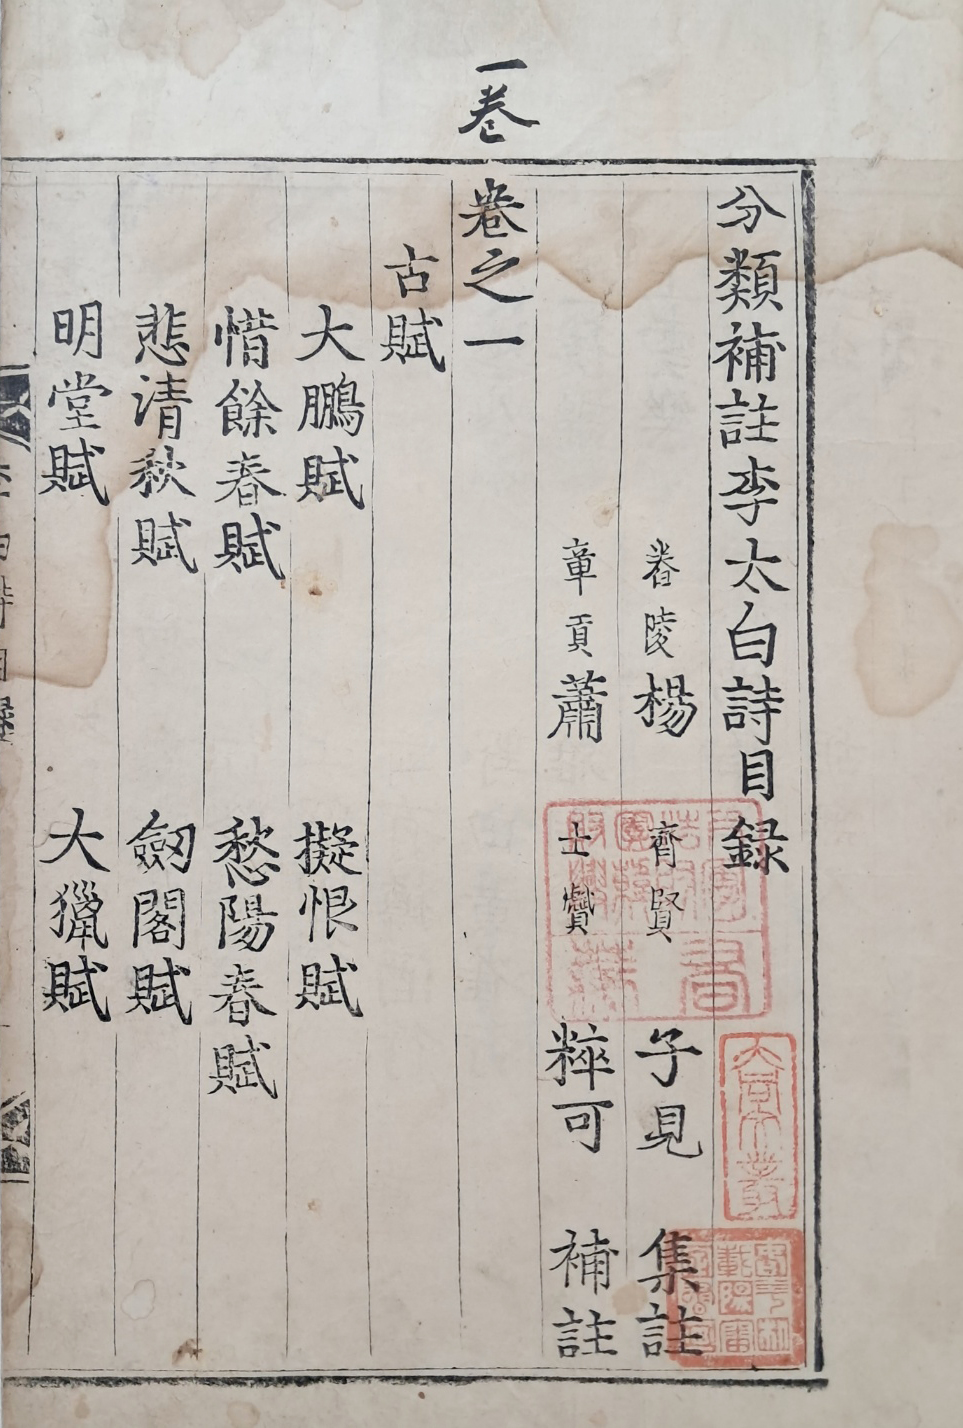 一卷
分類補註李太白詩目録
舂陵楊齊賢子見集註
章貢蕭士贇粹可補註
卷之一
古賦
大鵬賦 擬恨賦
惜餘春賦 愁陽春賦
悲清秋賦 劒閣賦
明堂賦 大獵賦